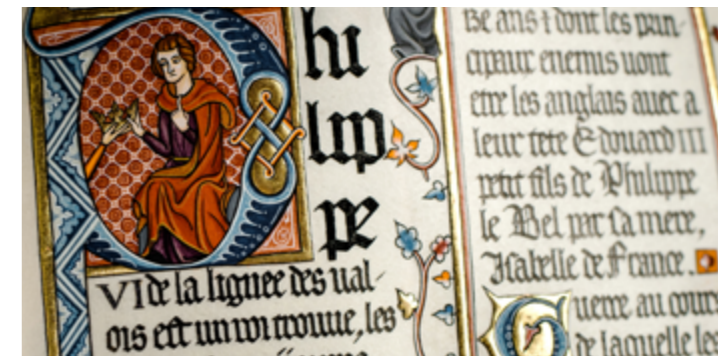 Phi
lip
pe
VI de la lignee des val-
ois est un roi trouve, les
ans & dont les prin-
cipaux enemis vont
etre les anglais avec a
leur tete Edouard III
petit fils de Philippe
le Bel par sa mere,
Isabelle de France.
Guerre au cours
de laquelle les